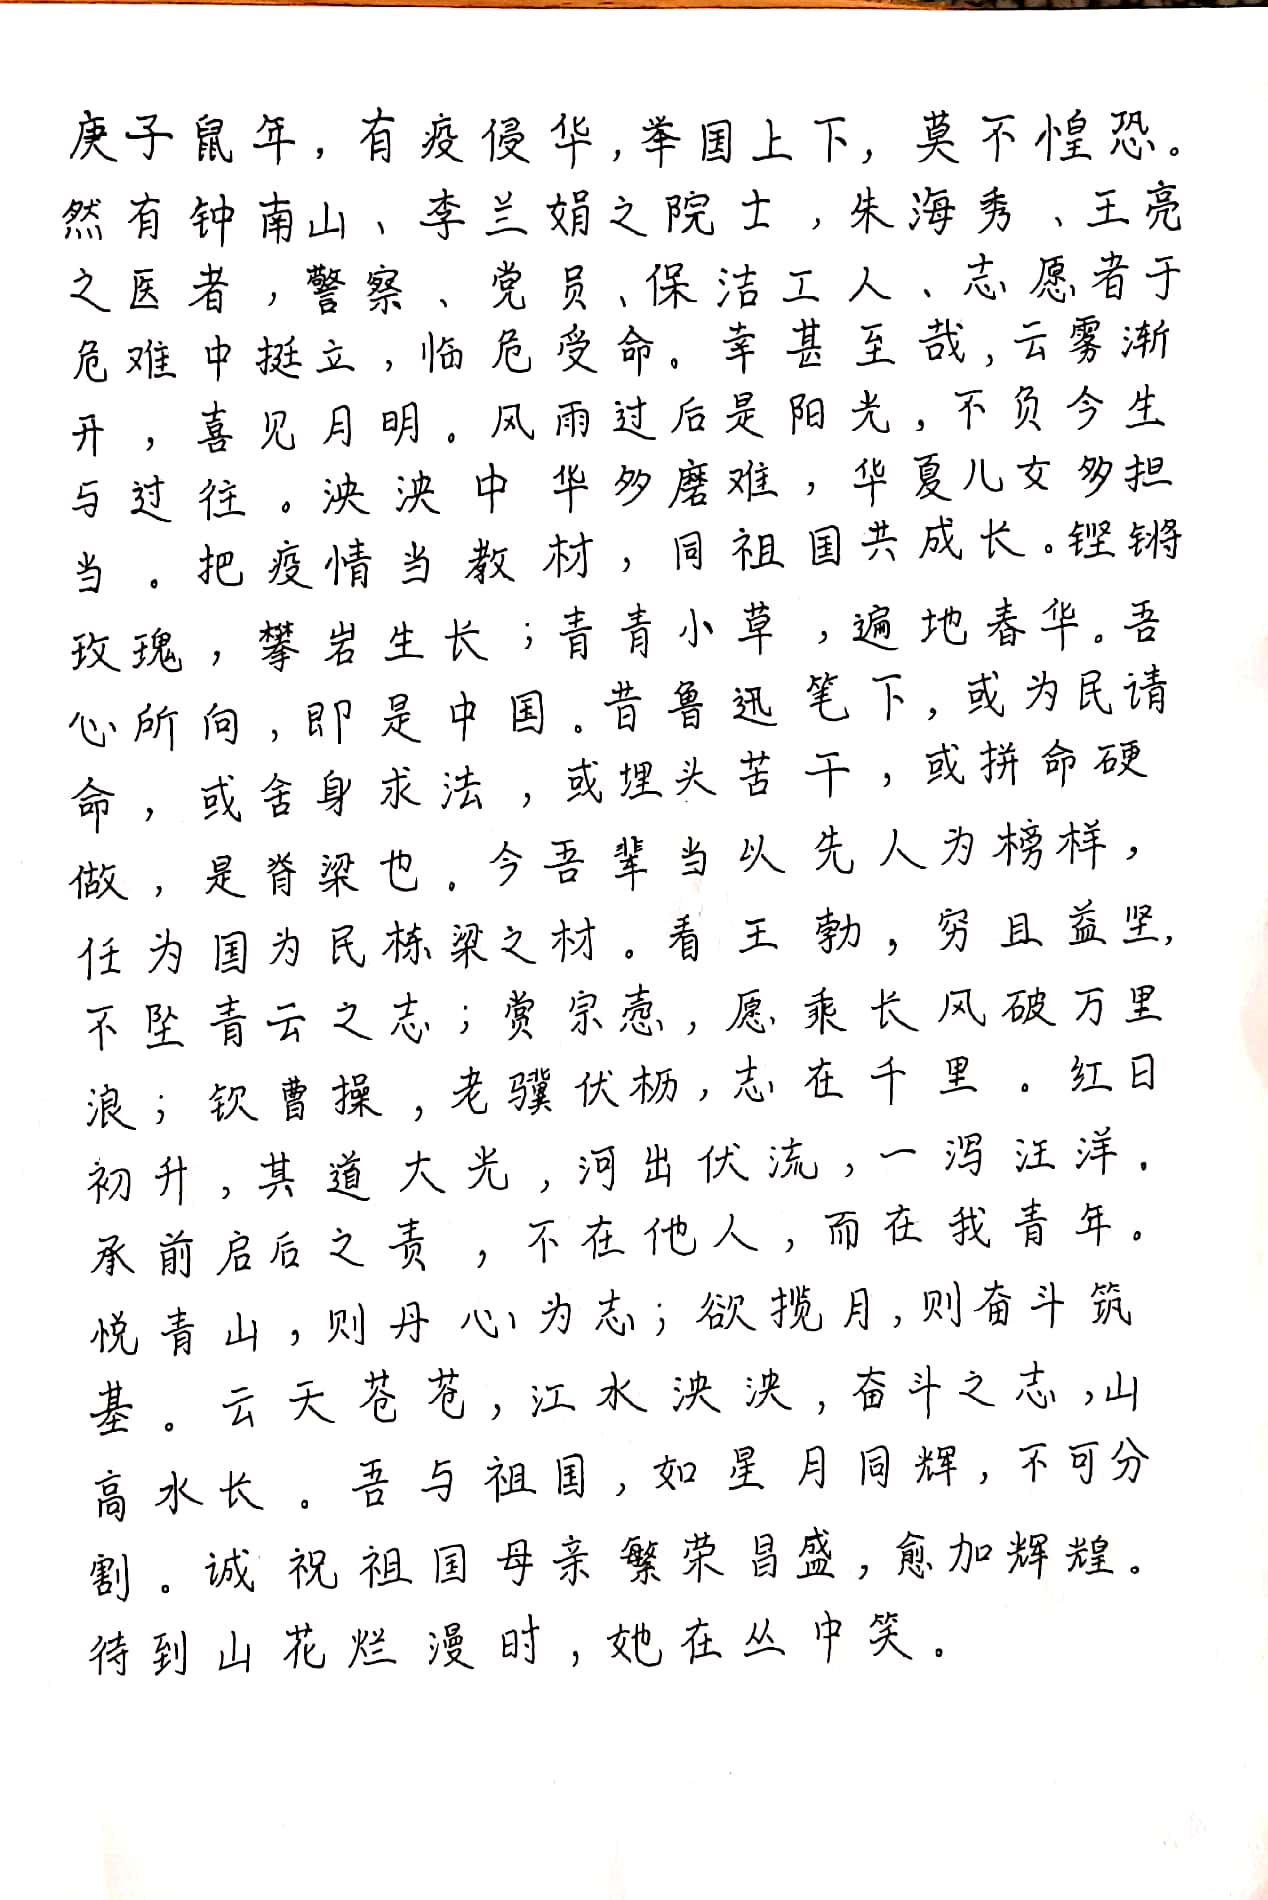 庚子鼠年，有疫侵华，举国上下，莫不惶恐。
然有钟南山、李兰娟之院士，朱海秀、王亮
之医者，警察、党员、保洁工人、志愿者于
危难中挺立，临危受命。幸甚至哉，云雾渐
开，喜见月明。风雨过后是阳光，不负今生
与过往。泱泱中华多磨难，华夏儿女多担
当。把疫情当教材，同祖国共成长。铿锵
玫瑰，攀岩生长；青青小草，遍地春华。吾
心所向，即是中国。昔鲁迅笔下，或为民请
命，或舍身求法，或埋头苦干，或拼命硬
做，是脊梁也。今吾辈当以先人为榜样，
任为国为民栋梁之材。看王勃，穷且益坚，
不坠青云之志；赏宗悫，愿乘长风破万里
浪；钦曹操，老骥伏枥，志在千里。红日
初升，其道大光，河出伏流，一泻汪洋．
承前启后之责，不在他人，而在我青年。
悦青山，则丹心为志；欲揽月，则奋斗筑
基。云天苍苍，江水泱泱，奋斗之志，山
高水长。吾与祖国，如星月同辉，不可分
割。诚祝祖国母亲繁荣昌盛，愈加辉煌。
待到山花烂漫时，她在丛中笑。